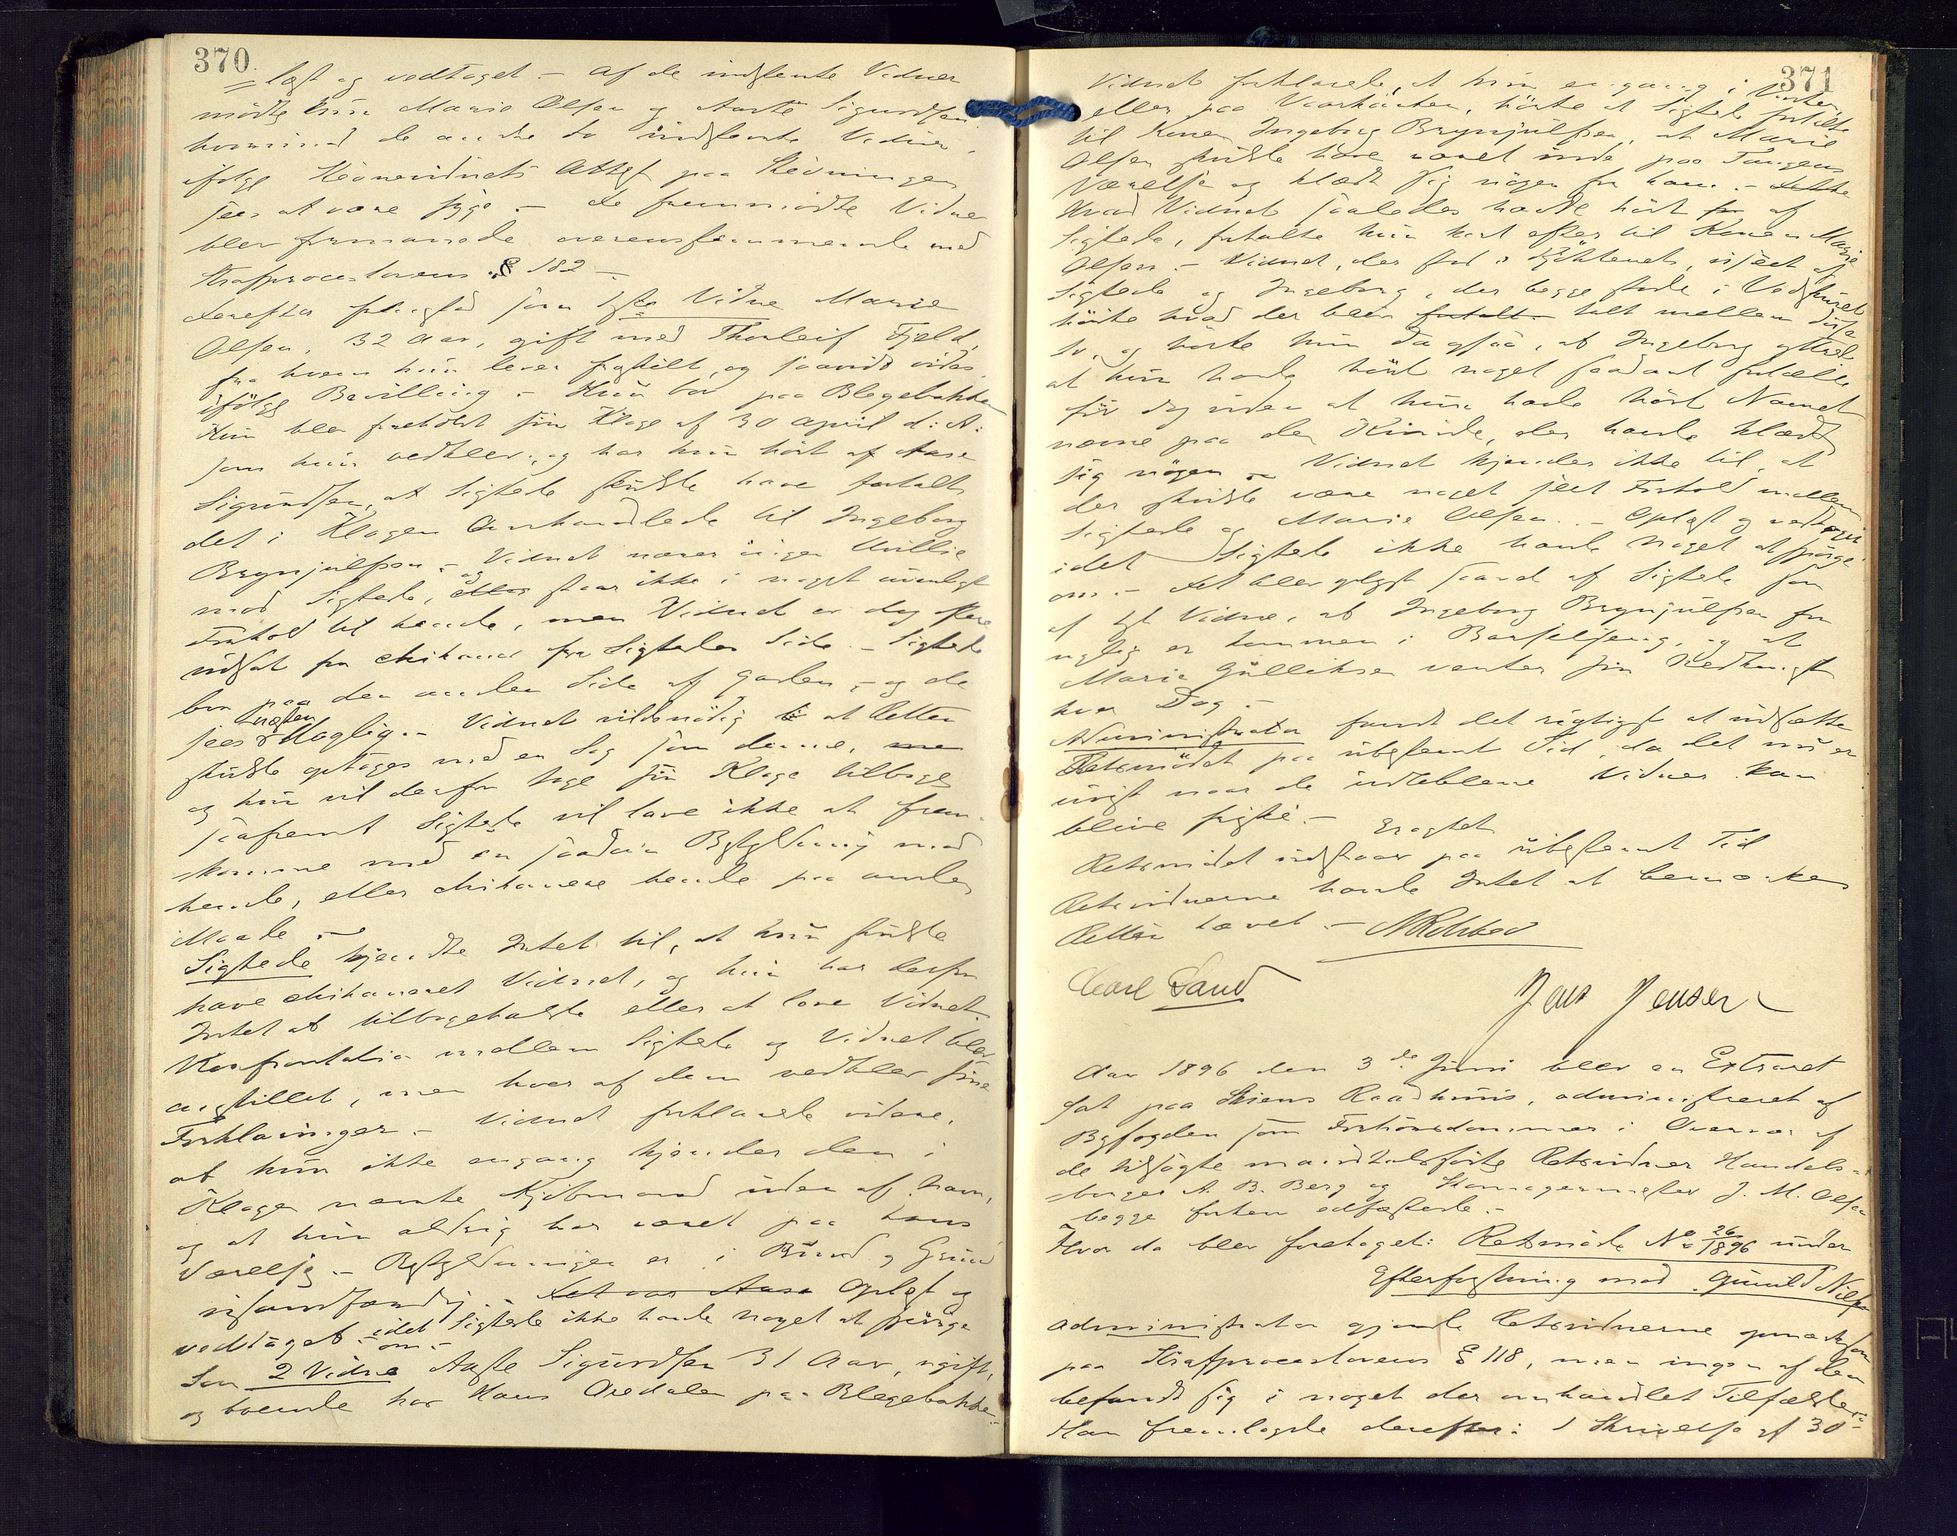 370
læst og vedtaget. – Af de indstevnte Vidner
mødte kun Marie Olsen og Aaste Sigurdsen
hvorimod de andre to indstevnte Vidner,
ifølge Stevnevidnets Attest paa Stevningen
sees at være syge. – De fremmødte Vidner
blev formanede overensstemmende med
Strafproceslovens § 182 –
Derefter fremstod som 1ste Vidne Marie
Olsen, 32 Aar, gift med Thorleif Fjeld,
fra hvem hun lever fraskilt, og saavidt vides
ifølge Bevilling. – Hun bor paa Blegebakken
Hun blev foreholdt sin Klage af 30 April d: A:
som hun vedblev, og har hun hørt af Aase
Sigurdsen, at Sigtede skulde have fortalt
det i Klagen Omhandlede til Ingeborg
Brynjulfsen. – Vidnet nærer ingen Uvillie
mod Sigtede, og staar ikke i noget uvenligt
Forhold til hende, men Vidnet er dog ofte
udsat for Chikaner fra Sigtedes Side. – Sigtede
bor paa den anden Side af Gaden, – og de
sees næsten daglig. – Vidnet vil nødig at Retten
skulde optages med en Sag som denne,
og hun vil derfor tage sin Klage tilbage
saafremt Sigtede vil love ikke at frem-
komme med en saadan Beskyldning mod
hende, eller chikanere hende paa anden
Maade. –
Sigtede kjendte Intet til, at hun skulde
have chikaneret Vidnet, og hun har derfor
Intet at tilbageholde eller at love Vidnet.
Konfrontation mellem Sigtede og Vidnet blev
anstillet, men hver af dem vedblev sine
Forklaringer. – Vidnet forklarede videre,
at hun ikke engang kjender den i
Klagen nævnte Kjøbmand uden af Navn,
og at hun aldrig har været paa hans
Værelse. – Beskyldningen er i Bund og Grund
usandfærdig – Det var Aase Oplæst og
vedtaget. – idet Sigtede ikke havde noget at spørge
om. –
Som 2 Vidne Aaste Sigurdsen 31 Aar, ugift,
og boende hos Hans Oredalen paa Blegebakken. –
371
Vidnet forklarede, at hun engang i Vinter
eller paa Vaarkanten, hørte at Sigtede fortalte
til Konen Ingeborg Brynjulfsen, at Marie
Olsen skulde have været inde paa Tangens
Værelse og klædt sig nøgen for ham. – Dette
Hvad Vidnet saaledes havde hørt af
Sigtede, fortalte hun kort efter til Konen Marie
Olsen. – Vidnet, der stod i Kjøkkenet, useet af
Sigtede og Ingeborg, der begge stode i Vedskuret
hørte hvad der blev fortalt talt mellem disse
to, og hørte hun da ogsaa, at Ingeborg yttrede
at hun havde hørt noget saadant fortælle
før dog uden at hun havde hørt Navnet
nævne paa den Kvinde, der havde klædt
sig nøgen – Vidnet kjender ikke til, at
der skulde være noget seet Forhold mellem
Sigtede og Marie Olsen. – Oplæst og vedtaget
idet Sigtede ikke havde noget at spørge
om. – Det blev oplyst saavel af Sigtede som
af 1st Vidne, at Ingeborg Brynjulfsen for
nylig er kommen i Barselseng, og at
Marie Gulliksen venter sin Nedkomst
hver Dag. –
Administrator fandt det rigtigst at udsætte
Retsmødet paa ubestemt Tid, da det nu er
uvist naar de udeblevne Vidner kan
blive friske. – Eragtet
Retsmødet udstaar paa ubestemt Tid
Retsvidnerne havde Intet at bemærke.
Retten hævet. –
Carl Sand
Jens Jensen
Aar 1896 den 3de Juni blev en Extraret
sat paa Skiens Raadhuus, administreret af
Byfogden som Forhørsdommer i Overvær af
de tilsagte mandtalsførte Retsvidner Handels-
borger A. B. Berg og Skomagermester J. M. Olsen
begge forhen edfæstede. –
Hvor da blev foretaget: Retsmøde No 26/1896 under
Efterforskning mod Gunild Nilsen
Administrator gjorde Retsvidnerne opmærksom
paa Strafproceslovens § 118, men ingen af dem
befandt sig i noget der omhandlet Tilfælde. –
Han fremlagde derefter: 1 Skrivelse af 30-